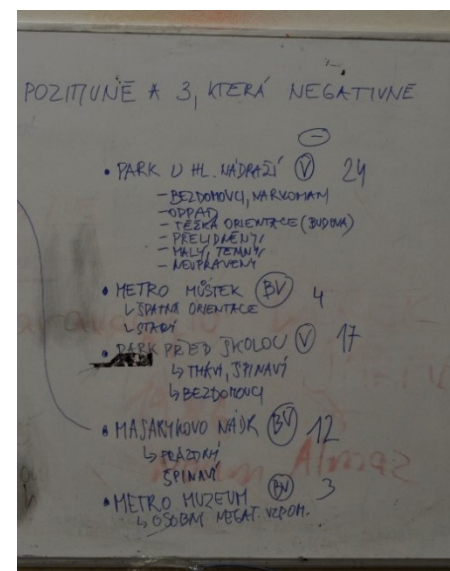 POZITIVNĚ A 3, KTERÁ NEGATIVNĚ
-
• PARK U HL. NÁDRAŽÍ (V) 24
- BEZDOMOVCI, NARKOMANI
- ODPAD
- TĚŽKÁ ORIENTACE (BUDOVA)
- PŘELIDNĚNÝ
- MALÝ, TEMNÝ
- NEUPRAVENÝ
• METRO MŮSTEK (BV) 4
↳ ŠPATNÁ ORIENTACE
↳ STARÝ
• PARK PŘED ŠKOLOU (V) 17
↳ TMAVÍ, ŠPINAVÍ
↳ BEZDOMOVCI
• MASARYKOVO NÁDR (BV) 12
↳ PRÁZDNÝ
ŠPINAVÍ
• METRO MUZEUM (BV) 3
↳ OSOBNÍ NEGAT. VZPOM.